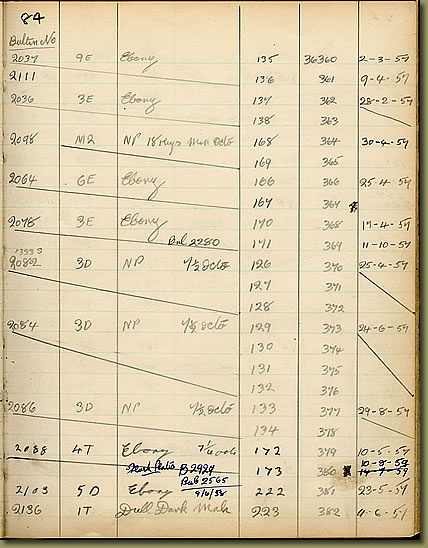 84
Bulletin No
2037 9E Ebony 135 36360 2-3-57
2111 136 361 9-4-57
2036 3E Ebony 137 362 28-2-57
138 363
2098 M2 NP 18 keys Mini Octo 168 364 30-4-57
169 365
2064 6E Ebony 166 366 25-4-57
167 367
2078 3E Ebony 170 368 17-4-57
Bul 2280 171 369 11-10-57
2082 3D NP 7½ Octo 126 370 25-4-57
127 371
128 372
2084 3D NP 7½ Octo 129 373 24-6-57
130 374
131 375
132 376
2086 3D NP 7½ Octo 133 377 29-8-57
134 378
2088 4T Ebony 172 379 10-5-57
B 2929 173 380 14-7-57
Bul 2565
2103 5D Ebony 222 381 23-5-57
9/6/58
2136 1T Dull Dark 223 382 11-6-57